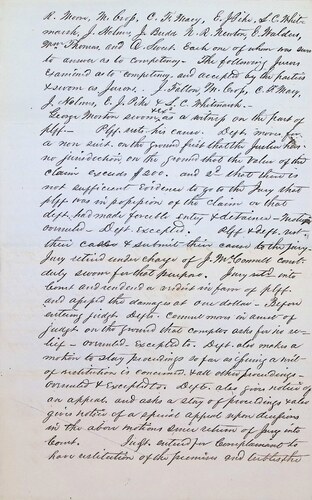 R. Moon, M. Crop, C. H. Macy, E. J. Pike, S. C. Whit
marsh, J. Nolms, J. Budd N. R. Newton, E. Walders,
Wm Thomas, and A. Sweet. Each one of whom was sworn
to answer as to competency - The following Jurors
Examined as to competency and accepted by the parties
& sworn as Jurors. J. Fallon, M. Crop, C. H. Macy,
J. Nolms, E. J. Pike & S. C. Whitmarsh.
George Morton sworn as a witness on the part of
plff - Plff rests his cause. Deft. moves for
a non suit. on the ground first that the justice has
no jurisdiction, on the ground that the value of the
claim exceeds $200. and 2d that there is
not sufficient Evidence to go to the Jury that
plff was in possession of the claim or that
deft. had made forcible entry & detainer - Motion
overruled - Deft. Excepted. Plff & deft. rest
their cases & submit their cause to the jury.
Jury retired under charge of J. McConnell const.
duly sworn for that purpose. Jury retd. into
Court and rendered a verdict in favor of plff.
and assessd the damages at one dollar - Before
entering judgt. Defts. Counsel moves in arrest of
judgt on the ground that complt asks for no re-
lief - overruled - Excepted to. Deft. also makes a
motion to stay proceedings so far as issuing a writ
of restitution is concerned & all other proceedings -
overruled & Excepted to. Defts. also gives notice of
an appeal and asks a stay of proceedings & also
gives notice of a special appeal upon decisions
in the above motions since return of Jury into
Court. Judgt. entered for Complainant to
have restitution of the premises and